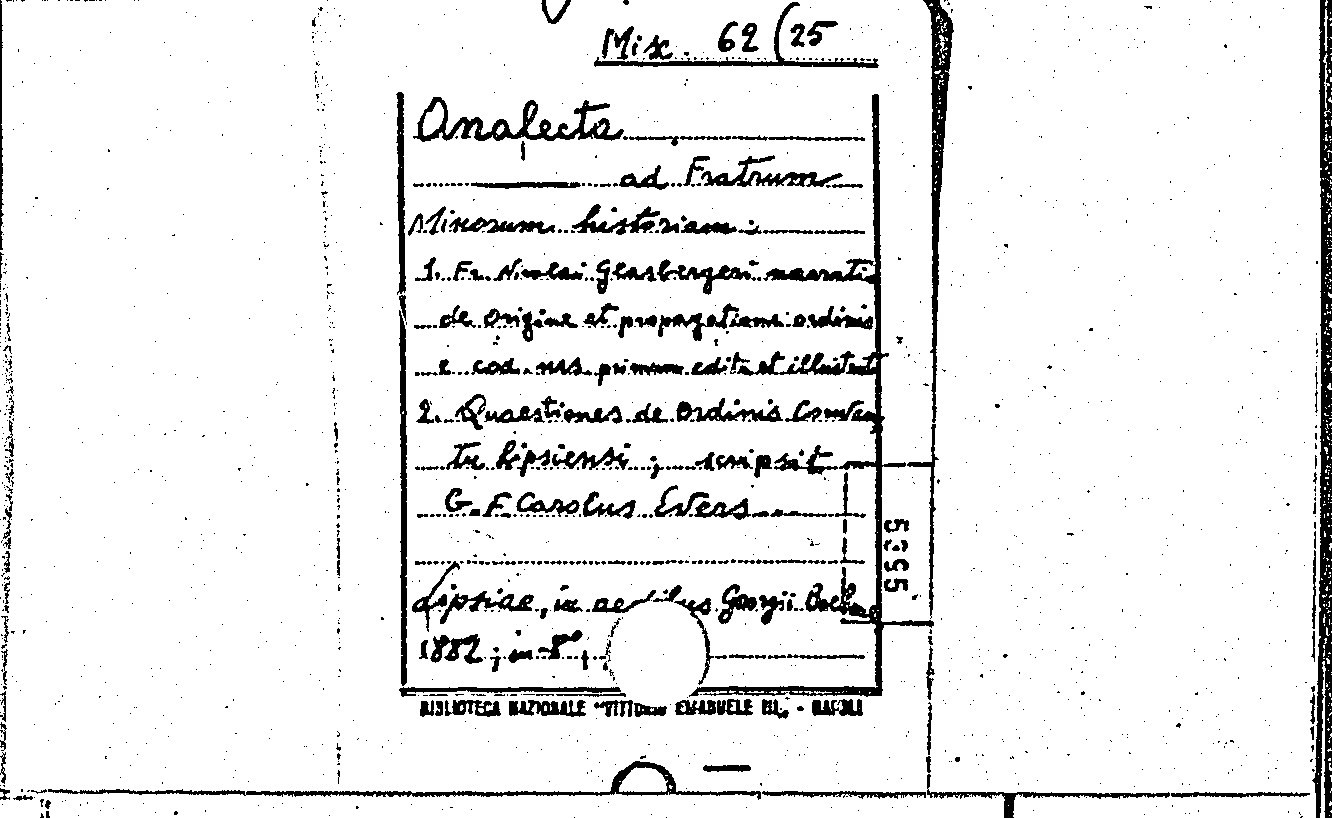 Misc. 62 (25
Analecta
ad Fratrum
Minorum historiam:
1. Fr. Nicolai Glasbergeri narratio
de origine et propagatione ordinis
e cod. ms primum edita et illustrat
2. Quaestiones de Ordinis Conven
tu Lipsiensi; scripsit
G. F. Carolus Evers
Lipsiae, in aedibus Georgii Boehme
1882; in-8°,
BIBLIOTECA NAZIONALE "VITTORIO EMANUELE III" - NAPOLI